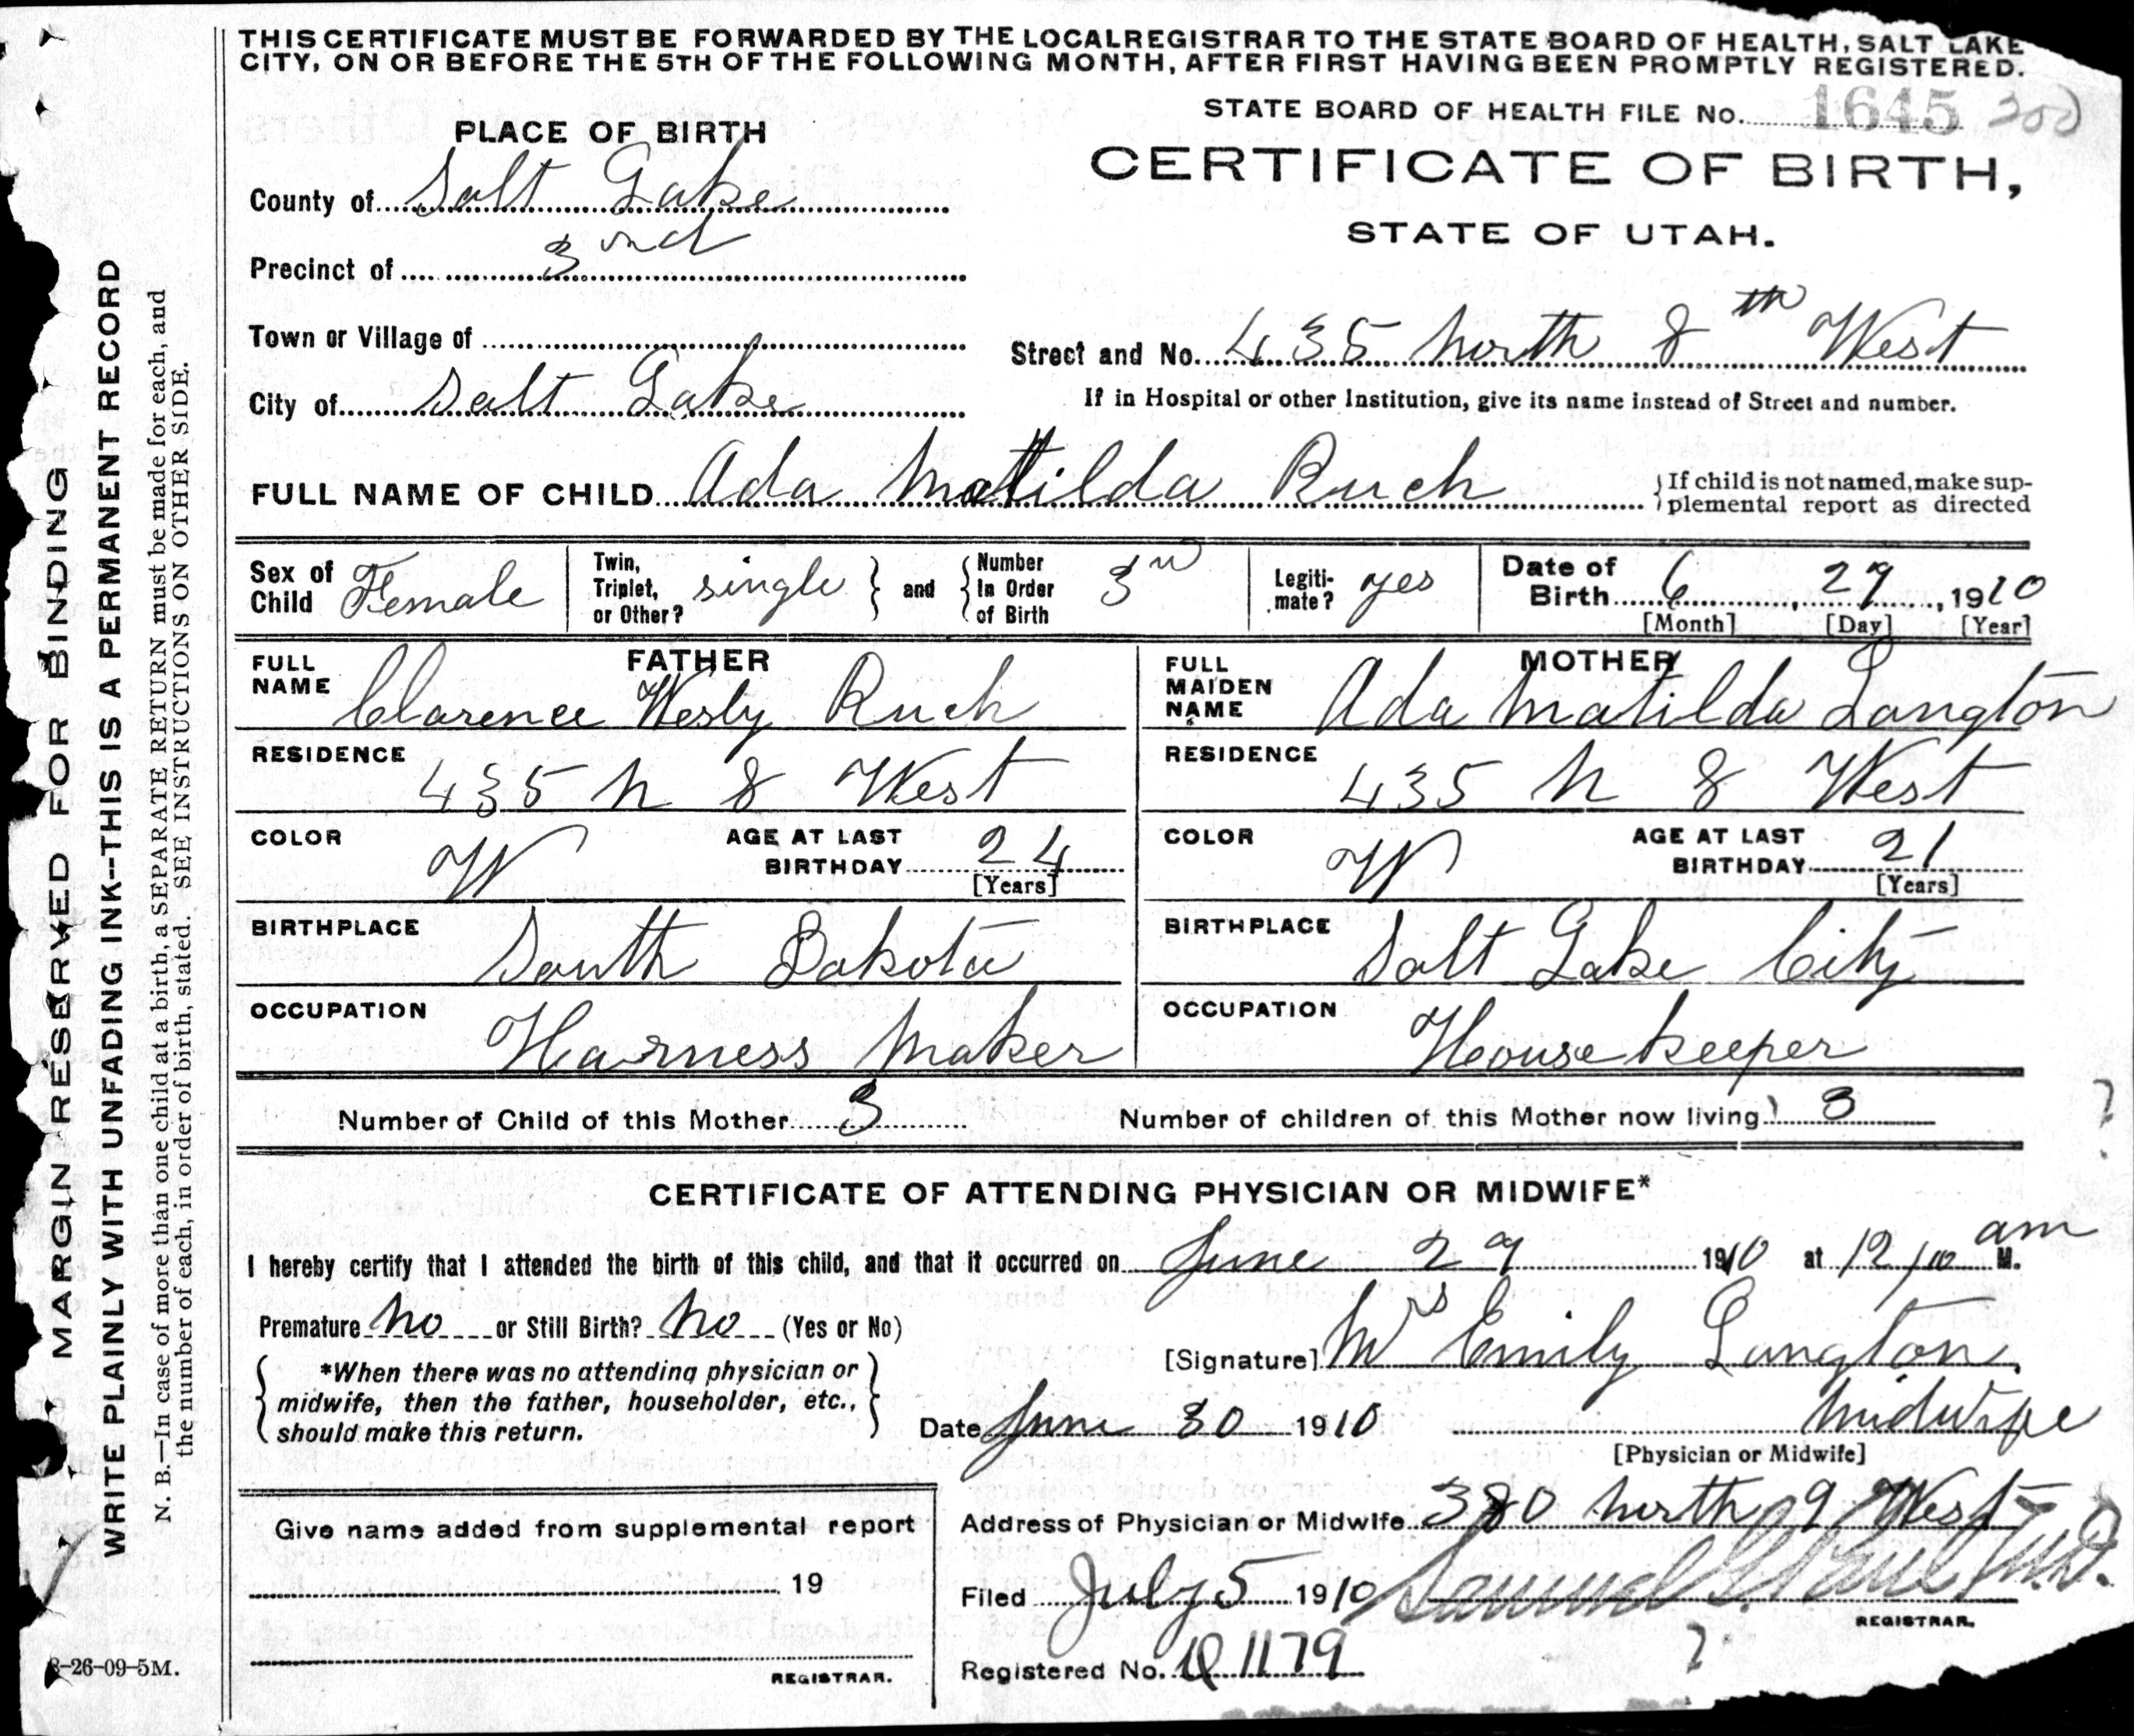 THIS CERTIFICATE MUST BE FORWARDED BY THE LOCAL REGISTRAR TO THE STATE BOARD OF HEALTH, SALT LAKE
CITY, ON OR BEFORE THE 5TH OF THE FOLLOWING MONTH, AFTER FIRST HAVING BEEN PROMPTLY REGISTERED.
STATE BOARD OF HEALTH FILE No. 1645 300
PLACE OF BIRTH
CERTIFICATE OF BIRTH,
STATE OF UTAH.
County of Salt Lake
Precinct of 3rd
Town or Village of
Street and No. 435 North 8th West
City of Salt Lake
If in Hospital or other Institution, give its name instead of Street and number.
FULL NAME OF CHILD Ada Matilda Ruch
If child is not named, make sup-
plemental report as directed
Sex of Child Female
Twin, Triplet, or Other? single
and
Number In Order of Birth 3rd
Legiti-mate? yes
Date of Birth 6, 29, 1910
[Month] [Day] [Year]
FATHER
FULL NAME Clarence Wesly Ruch
RESIDENCE 435 N 8 West
COLOR W
AGE AT LAST BIRTHDAY 24
[Years]
BIRTHPLACE South Dakota
OCCUPATION Harness Maker
MOTHER
FULL MAIDEN NAME Ada Matilda Langton
RESIDENCE 435 N 8 West
COLOR W
AGE AT LAST BIRTHDAY 21
[Years]
BIRTHPLACE Salt Lake City
OCCUPATION House keeper
Number of Child of this Mother 3
Number of children of this Mother now living 3
?
CERTIFICATE OF ATTENDING PHYSICIAN OR MIDWIFE*
I hereby certify that I attended the birth of this child, and that it occurred on June 29 1910 at 12/10 am M.
Premature No or Still Birth? No (Yes or No)
[Signature] Mrs Emily Langton
*When there was no attending physician or
midwife, then the father, householder, etc.,
should make this return.
Date June 30 1910
Midwife
[Physician or Midwife]
Address of Physician or Midwife 380 North 9 West
Filed July 5 1910 Samuel G. Paul M.D.
REGISTRAR.
Registered No. 1179
?
Give name added from supplemental report
19
REGISTRAR.
8-26-09-5M.
MARGIN RESERVED FOR BINDING
WRITE PLAINLY WITH UNFADING INK--THIS IS A PERMANENT RECORD
N. B.—In case of more than one child at a birth, a SEPARATE RETURN must be made for each, and
the number of each, in order of birth, stated. SEE INSTRUCTIONS ON OTHER SIDE.